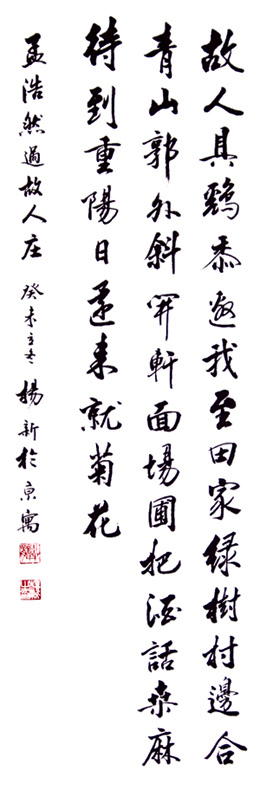 故人具鷄黍邀我至田家绿樹村邊合
青山郭外斜開軒面場圃把酒話桑麻
待到重陽日還来就菊花
孟浩然過故人庄 癸未立冬 楊新於京寓